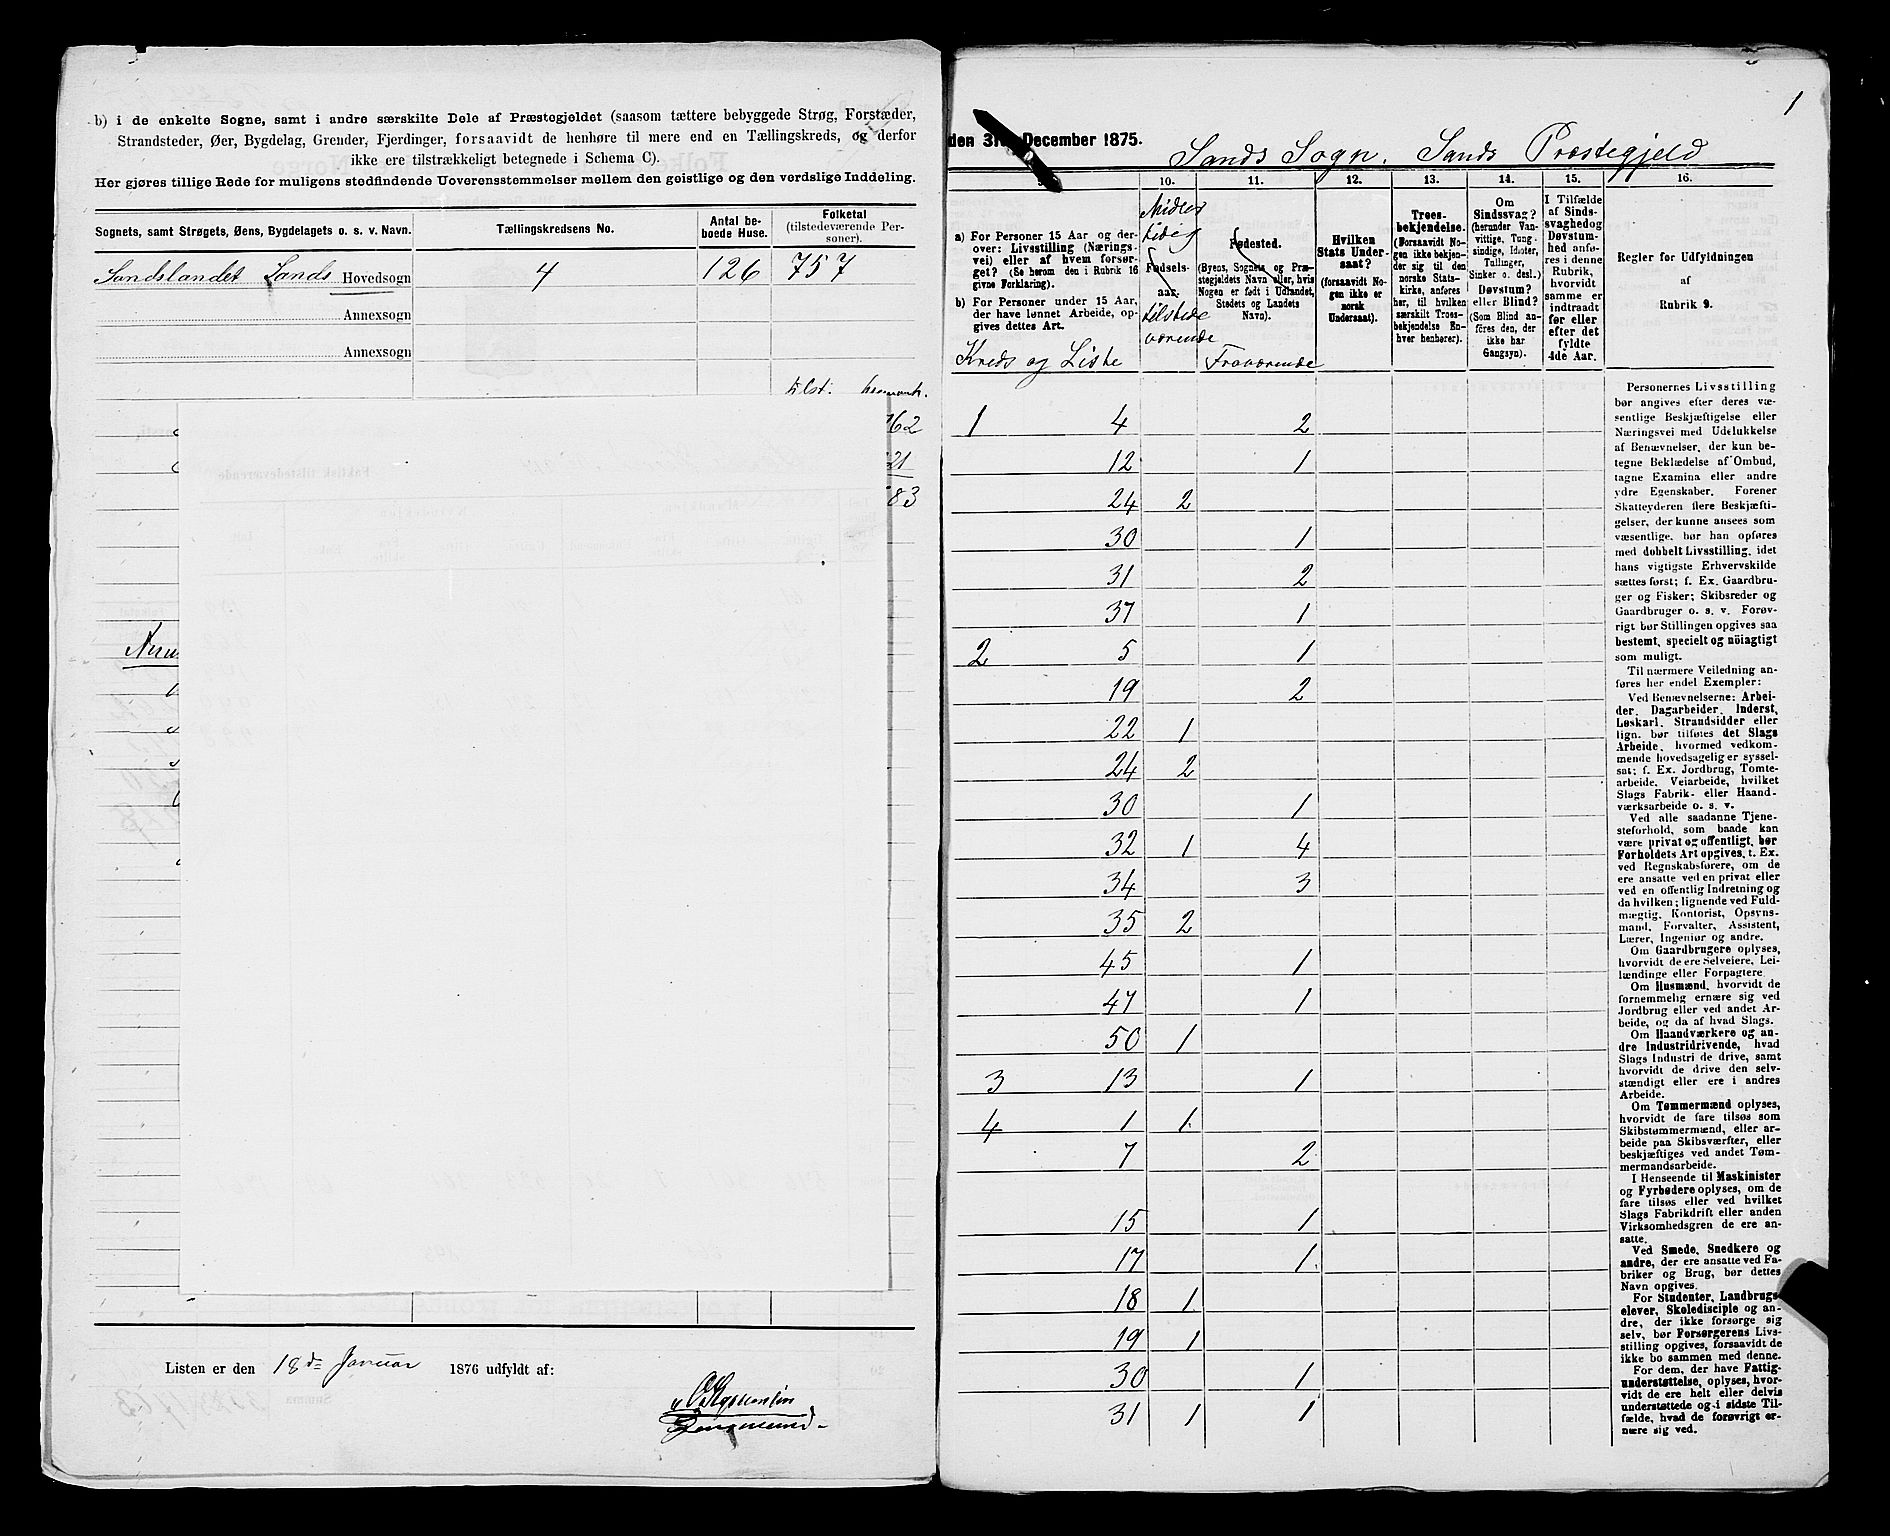 b) i de enkelte Sogne, samt i andre særskilte Dele af Præstegjeldet (saasom tættere bebyggede Strøg, Forstæder,
Strandsteder, Øer, Bygdelag, Grender, Fjerdinger, forsaavidt de henhöre til mere end en Tællingskreds, og derfor
ikke ere tilstrækkeligt betegnede i Schema C).
Her gjøres tillige Rede for muligens stedfindende Uoverensstemmelser mellem den geistlige og den verdslige Inddeling.
Sognets, samt Strøgets, Øens, Bygdelagets o. s. v. Navn.
Tællingskredsens No.
Antal be-
boede Huse.
Folketal
(tilstedeværende Per-
soner).
Sandslandet Sands Hovedsogn 4 126 757
Annexsogn
Annexsogn
tilst:
62
21
83
Listen er den 18de Januar 1876 udfyldt af:
1
den 31te December 1875.
Sands Sogn. Sands Præstegjeld
10. 11. 12. 13. 14. 15. 16.
a) For Personer 15 Aar og der-
over: Livsstilling (Nærings-
vei) eller af hvem forsør-
get? (Se herom den i Rubrik 16
givne Forklaring).
b) For Personer under 15 Aar,
der have lønnet Arbeide, op-
gives dettes Art.
Kreds og Liste
Midler
tidig
Fødsels-
aar.
tilstede
værende
Fødested.
(Byens, Sognets og Præ-
stegjeldets Navn eller, hvis
Nogen er født i Udlandet,
Stedets og Landets
Navn).
Fraværende
Hvilken
Stats Under-
saat?
(forsaavidt No-
gen ikke er
norsk
Undersaat).
Troes-
bekjendelse.
(Forsaavidt No-
gen ikke bekjen-
der sig til den
norske Stats-
kirke, anføres
her, til hvilken
særskilt Troes-
bekjendelse En-
hver henhører).
Om
Sindssvag?
(herunder Van-
vittige, Tung-
sindige, Idioter,
Tullinger,
Sinker o. desl.)
Døvstum?
eller Blind?
(Som Blind an-
føres den, der
ikke har
Gangsyn).
I Tilfælde
af Sinds-
svaghed og
Døvstum-
hed anfø-
res i denne
Rubrik,
hvorvidt
samme er
indtraadt
før eller
efter det
fyldte
4de Aar.
Regler for Udfyldningen
af
Rubrik 9.
1 4 2
12 1
24 2
30 1
31 2
37 1
2 5 1
19 2
22 1
24 2
30 1
32 1 4
34 3
35 2
45 1
47 1
50 1
3 13 1
4 1 1
7 2
15 1
17 1
18 1
19 1
30 1
31 1 1
Personernes Livsstilling
bør angives efter deres væ-
sentlige Beskjæftigelse eller
Næringsvei med Udelukkelse
af Benævnelser, der kun be-
tegne Beklædelse af Ombud,
tagne Examina eller andre
ydre Egenskaber. Forener
Skatteyderen flere Beskjæfti-
gelser, der kunne ansees som
væsentlige, bør han opføres
med dobbelt Livsstilling, idet
hans vigtigste Erhvervskilde
sættes først; f. Ex. Gaardbru-
ger og Fisker; Skibsreder og
Gaardbruger o. s. v. Forøv-
rigt bør Stillingen opgives saa
bestemt, specielt og nöiagtigt
som muligt.
Til nærmere Veiledning an-
føres her endel Exempler:
Ved Benævnelserne: Arbei-
der, Dagarbeider, Inderst,
Løskarl, Strandsidder eller
lign. bør tilføies det Slags
Arbeide, hvormed vedkom-
mende hovedsagelig er syssel-
sat; f. Ex. Jordbrug, Tomte-
arbeide, Veiarbeide, hvilket
Slags Fabrik- eller Haand-
værksarbeide o. s. v.
Ved alle saadanne Tjene-
steforhold, som baade kan
være privat og offentligt, bør
Forholdets Art opgives, t. Ex.
ved Regnskabsførere, om de
ere ansatte ved en privat eller
ved en offentlig Indretning og
da hvilken; lignende ved Fuld-
mægtig, Kontorist, Opsyns-
mand, Forvalter, Assistent,
Lærer, Ingeniør og andre.
Om Gaardbrugere oplyses,
hvorvidt de ere Selveiere, Lei-
lændinge eller Forpagtere.
Om Husmænd, hvorvidt de
fornemmelig ernære sig ved
Jordbrug eller ved andet Ar-
beide, og da af hvad Slags.
Om Haandværkere og an-
dre Industridrivende, hvad
Slags Industri de drive, samt
hvorvidt de drive den selv-
stændigt eller ere i andres
Arbeide.
Om Tømmermænd oplyses,
hvorvidt de fare tilsøs som
Skibstømmermænd, eller ar-
beide paa Skibsværfter, eller
beskjæftiges ved andet Tøm-
mermandsarbeide.
I Henseende til Maskinister
og Fyrbødere oplyses, om de
fare tilsøs eller ved hvilket
Slags Fabrikdrift eller anden
Virksomhedsgren de ere an-
satte.
Ved Smede, Snedkere og
andre, der ere ansatte ved Fa-
briker og Brug, bør dettes
Navn opgives.
For Studenter, Landbrugs-
elever, Skoledisciple og an-
dre, der ikke forsørge sig
selv, bør Forsørgerens Livs-
stilling opgives, forsaavidt de
ikke bo sammen med denne.
For dem, der have Fattig-
understøttelse, oplyses, hvor-
vidt de ere helt eller delvis
understøttede og i sidste Til-
fælde, hvad de forøvrigt er-
nære sig ved.